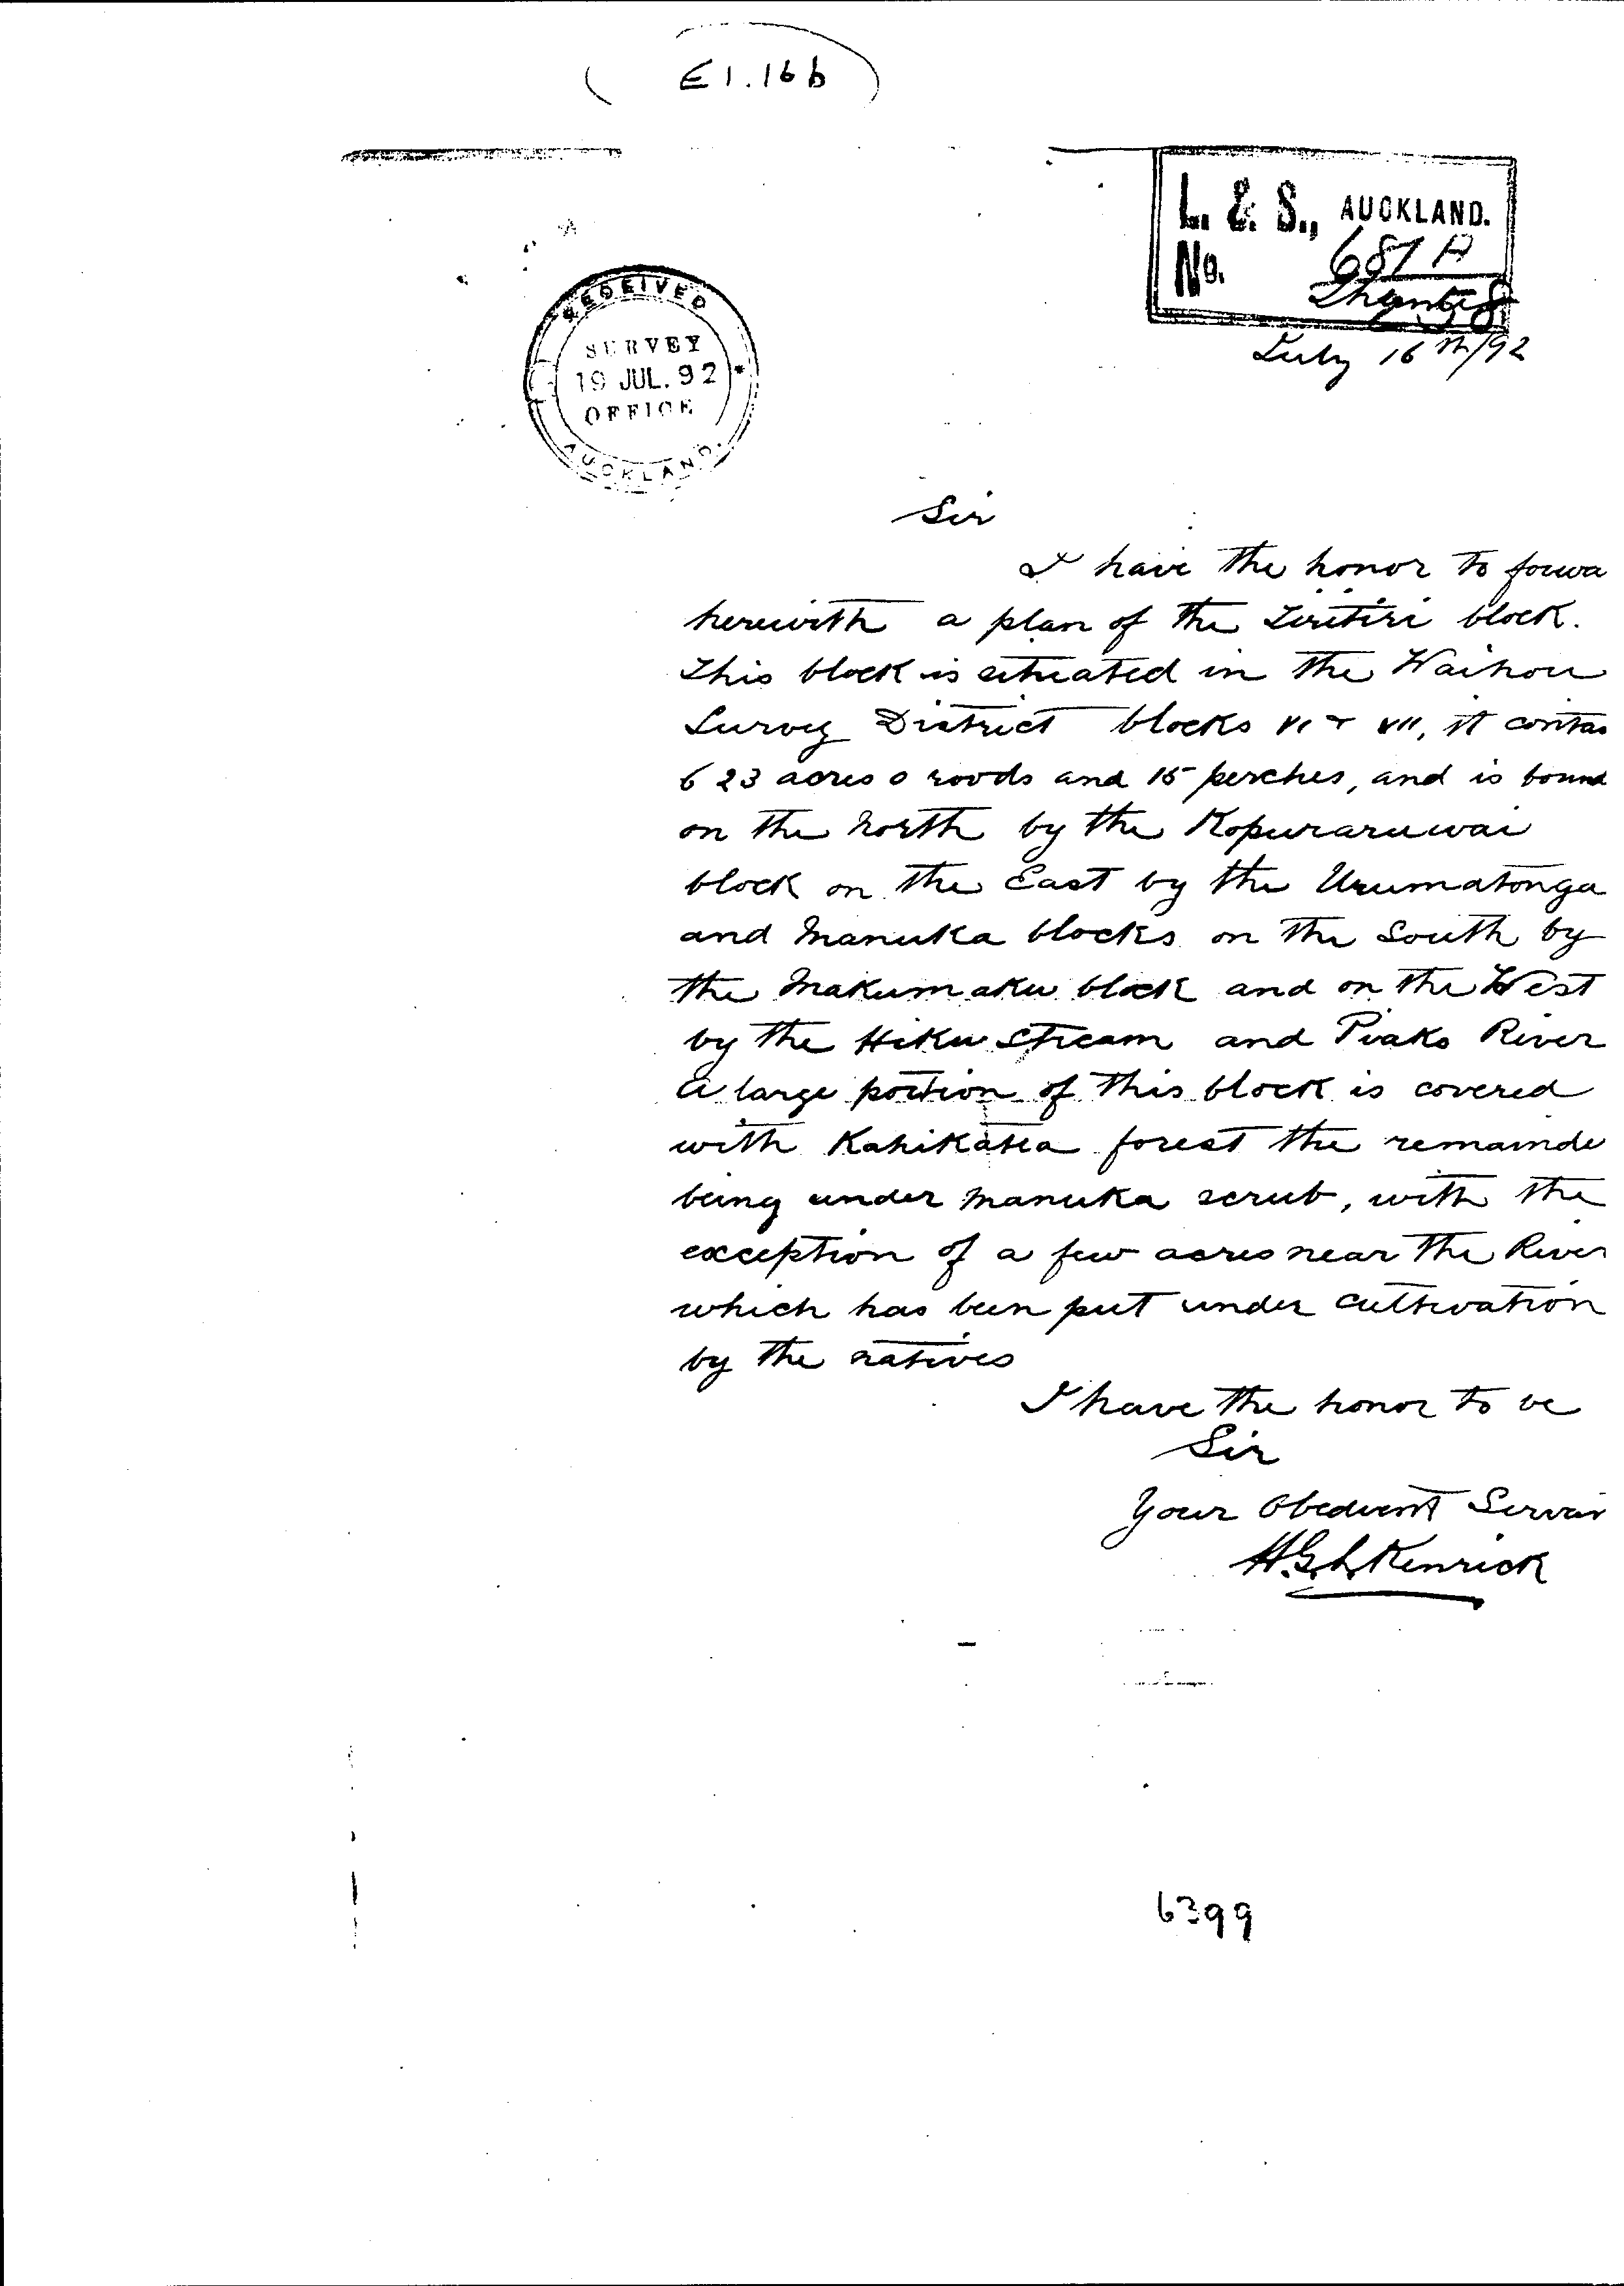 E1.16b
L. & S., AUCKLAND.
No. 687 A
RECEIVED
SURVEY
19 JUL. 92
OFFICE
AUCKLAND.
July 16th/92
Sir
I have the honor to forwa
herewith a plan of the Tiritiri block.
This block is situated in the Waihou
Survey District blocks VI & VII, it contas
623 acres 0 roods and 15 perches, and is bound
on the north by the Kopuraruwai
block on the East by the Urumatonga
and Manuka blocks on the South by
the Makumaku block and on the West
by the Hiku Stream and Piako River
A large portion of this block is covered
with Kahikatea forest the remainde
being under manuka scrub, with the
exception of a few acres near the River
which has been put under cultivation
by the natives
I have the honor to be
Sir
Your Obedient Servan
H.G.L. Kenrick
6399